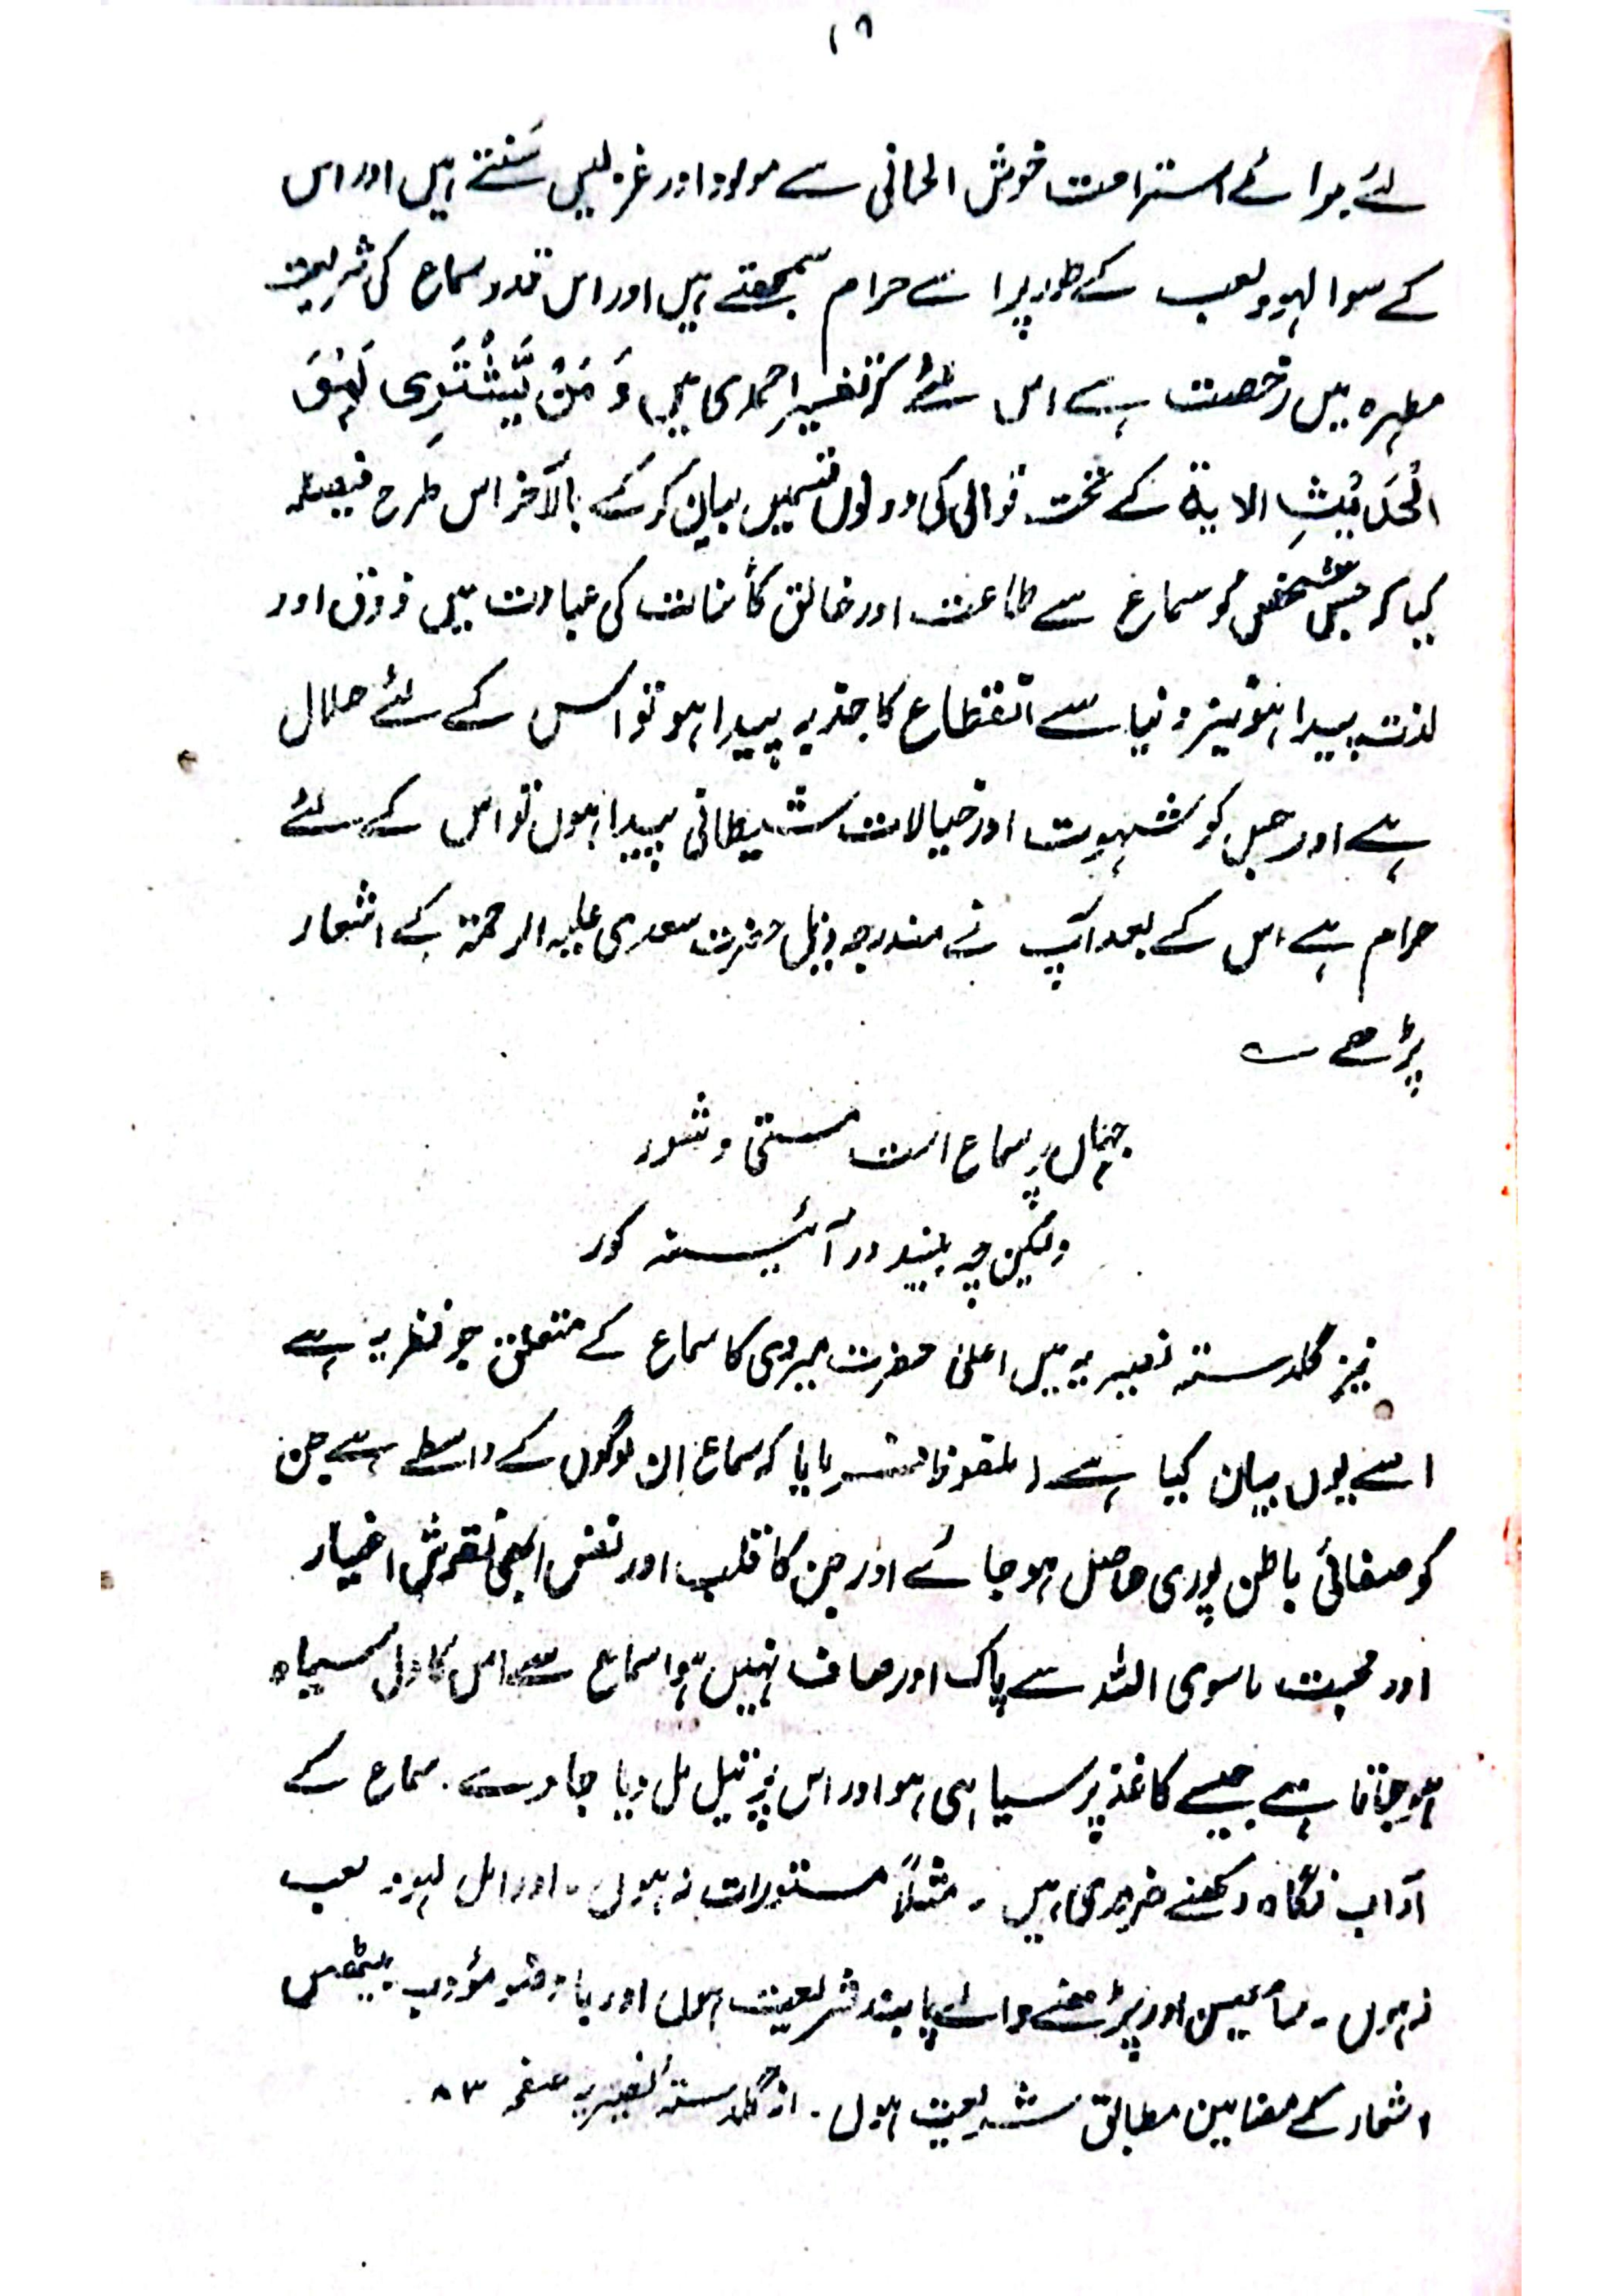 ۱۸
لئے برائے استراحت خوش الحانی سے مولود اور غزلیں سُنتے ہیں اور اس
کے سوا لہو ولعب کے طور پر اسے حرام سمجھتے ہیں اور اس قدر سماع کی شریعت
مطہرہ میں رخصت ہے اس لئے کہ تفسیر احمدی میں وَ مَنْ یَّشْتَرِی لَہْوَ
الْحَدِیْثِ الایۃ کے تحت قوالی کی دونوں قسمیں بیان کر کے بالآخر اس طرح فیصلہ
کیا کہ جس شخص کو سماع سے طاعت اور خالق کائنات کی عبادت میں ذوق اور
لذت پیدا ہو نیز دنیا سے انقطاع کا جذبہ پیدا ہو تو اس کے لئے حلال
ہے اور جس کو شہوت اور خیالات شیطانی پیدا ہوں تو اس کے لئے
حرام ہے اس کے بعد آپ نے مندرجہ ذیل حضرت سعدی علیہ الرحمۃ کے اشعار
پڑھے ؎
جہاں پر سماع است مستی و شور
ولیکن چہ بیند در آئینہ کور
نیز گلدستہ نصیریہ میں اعلیٰ حضرت میروی کا سماع کے متعلق جو نظریہ ہے
اسے یوں بیان کیا ہے (ملفوظ) فرمایا کہ سماع ان لوگوں کے واسطے ہے جن
کو صفائی باطن پوری حاصل ہو جائے اور جن کا قلب اور نفس ابھی نقوش اغیار
اور محبت ماسوی اللہ سے پاک اور صاف نہیں ہوا سماع سے اس کا دل سیاہ
ہو جاتا ہے جیسے کاغذ پر سیاہی ہو اور اس پر تیل مل دیا جاوے۔ سماع کے
آداب نگاہ رکھنے ضروری ہیں۔ مثلاً مستورات نہ ہوں۔ اور اہل لہو و لعب
نہ ہوں۔ سامعین اور پڑھنے والے پابند شریعت ہوں اور با وضو مؤدب بیٹھیں
اشعار کے مضامین مطابق شریعت ہوں۔ از گلدستہ نصیریہ صفحہ ۸۳